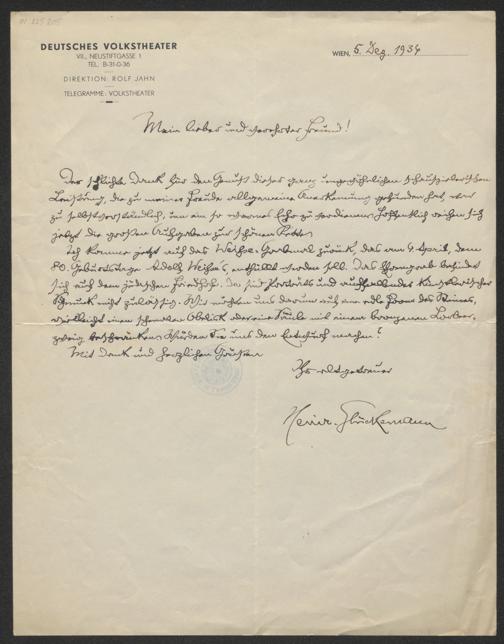 IN 225 205
DEUTSCHES VOLKSTHEATER
VII., NEUSTIFTGASSE 1
TEL. B-31-0-36
DIREKTION: ROLF JAHN
TELEGRAMME: VOLKSTHEATER
WIEN, 5. Dez. 1934
Mein lieber und verehrter Freund!
Der schlichte Dank für den Genuß dieser ganz ungewöhnlichen schauspielerischen
Leistung, die zu meiner Freude allgemeine Anerkennung gefunden hat, war
zu selbstverständlich, um ein so warmes Echo zu verdienen. Hoffentlich reihen sich
jetzt die großen Aufgaben zur schönen Kette.
Ich komme jetzt auf das Weisse-Grabmal zurück, das am 4. April, dem
80. Geburtstage Adolf Weisse's, enthüllt werden soll. Das Ehrengrab befindet
sich auf dem jüdischen Friedhof. Da sind Porträts und auffallender künstlerischer
Schmuck nicht zulässig. Wir möchten uns darum auf eine edle Form des Steines,
vielleicht einen schmalen Obelisk oder eine Säule mit einem bronzenen Lorbeer-
zweig beschränken. Würden Sie uns den Entwurf machen?
Mit Dank und herzlichen Grüßen
Ihr altgetreuer
Heinr. Glücksmann